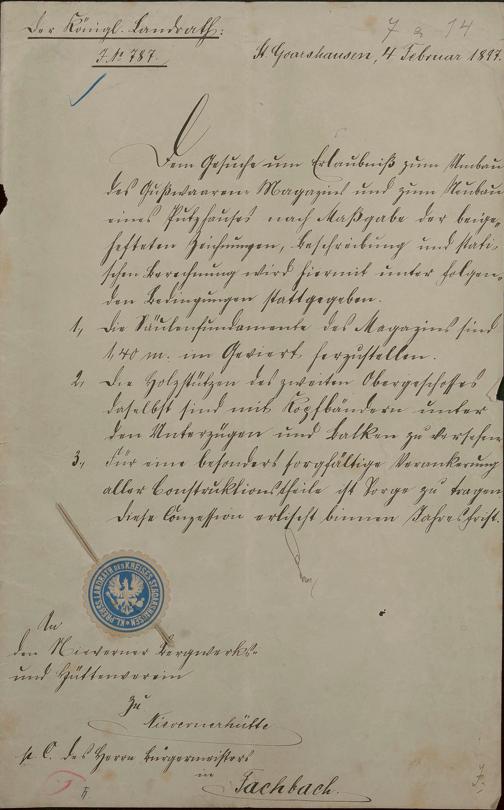 Der Königl. Landrath:
J. № 787.
7 a 14
St. Goarshausen, 4 Februar 1897.
Dem Gesuche um Erlaubniß zum Umbau
des Gußwaaren-Magazins und zum Neubau
eines Putzhauses nach Maßgabe der beige-
hefteten Zeichnungen, Beschreibung und stati-
schen Berechnung wird hiermit unter folgen-
den Bedingungen stattgegeben.
1, Die Säulenfundamente des Magazins sind
1,40 m. im Geviert herzustellen.
2, Die Holzstützen des zweiten Obergeschosses
daselbst sind mit Kopfbändern unter
den Unterzügen und Balken zu versehen
3, Für eine besonders sorgfältige Verankerung
aller Construktionstheile ist Sorge zu tragen
Diese Conzession erlischt binnen Jahresfrist.
KL. PREUSS. LANDRATH DES KREISES ST. GOARSHAUSEN
An
den Nieverner Bergwerks-
und Hüttenverein
zu
Nievernerhütte
p. C. des Herrn Bürgermeisters
in
Fachbach.